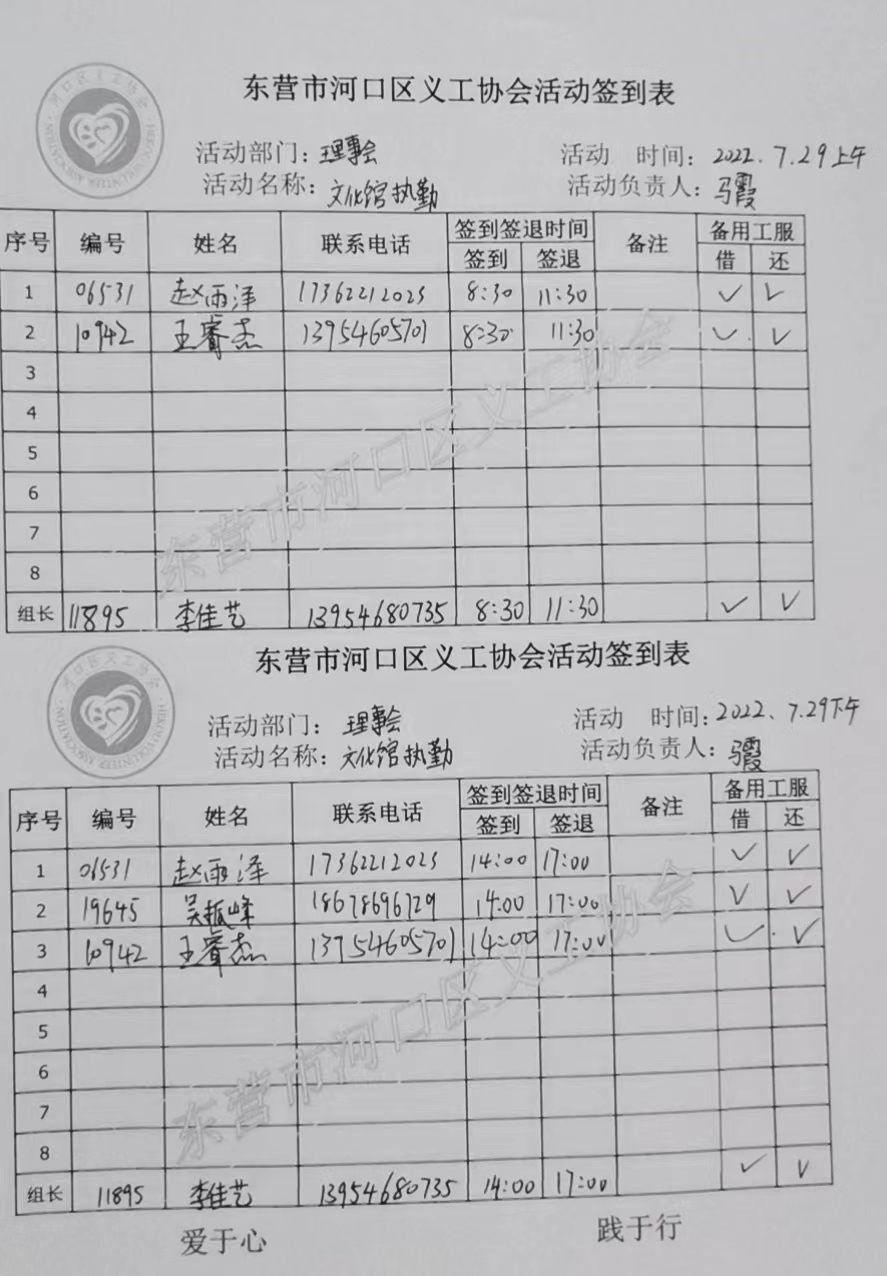 东营市河口区义工协会活动签到表
河口区义工协会
HEKOU VOLUNTEER ASSOCIATION
活动部门：理事会 活动 时间：2022.7.29上午
活动名称：文化馆执勤 活动负责人：马霞
序号 编号 姓名 联系电话 签到签退时间 备注 备用工服
签到 签退 借 还
1 06531 赵雨泽 17362212023 8:30 11:30 ✓ ✓
2 10942 王睿杰 13954605701 8:30 11:30 ✓ ✓
3
4
5
6
7
8
组长 11895 李佳艺 13954680735 8:30 11:30 ✓ ✓
东营市河口区义工协会
东营市河口区义工协会活动签到表
河口区义工协会
HEKOU VOLUNTEER ASSOCIATION
活动部门：理事会 活动 时间：2022.7.29下午
活动名称：文化馆执勤 活动负责人：马霞
序号 编号 姓名 联系电话 签到签退时间 备注 备用工服
签到 签退 借 还
1 06531 赵雨泽 17362212023 14:00 17:00 ✓ ✓
2 19645 吴振峰 18678696729 14:00 17:00 ✓ ✓
3 10942 王睿杰 13954605701 14:00 17:00 ✓ ✓
4
5
6
7
8
组长 11895 李佳艺 13954680735 14:00 17:00 ✓ ✓
东营市河口区义工协会
爱于心 践于行